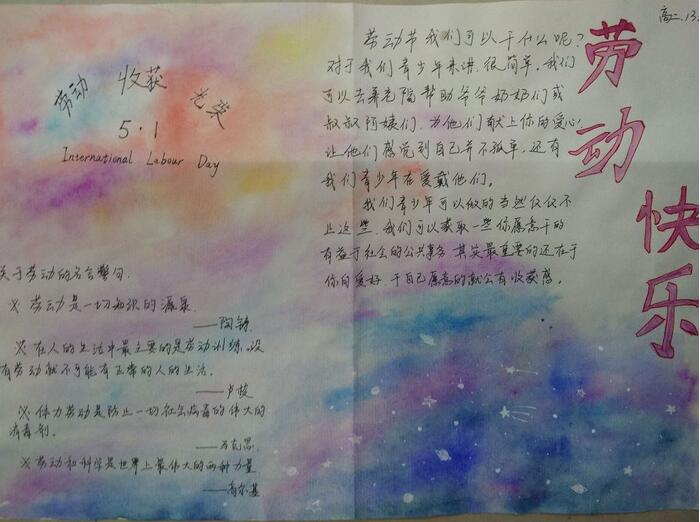 劳动 收获 光荣
5·1
International Labour Day
关于劳动的名言警句.
※ 劳动是一切知识的源泉.
——陶铸
※ 在人的生活中最主要的是劳动训练,没
有劳动就不可能有正常的人的生活。
——卢梭
※ 体力劳动是防止一切社会病毒的伟大的
消毒剂。
——马克思
※ 劳动和科学是世界上最伟大的两种力量
——高尔基
高二.13.
劳动
快乐
劳动节我们可以干什么呢?
对于我们青少年来讲,很简单,我们
可以去养老院帮助爷爷奶奶们或
叔叔阿姨们,为他们献上你的爱心,
让他们感觉到自己并不孤单,还有
我们青少年在爱戴他们。
我们青少年可以做的当然仅仅不
止这些,我们可以 一些你愿意干的
有益于社会的公共事务,其实最重要的还在于
你的爱好,干自己愿意的就会有收获感。